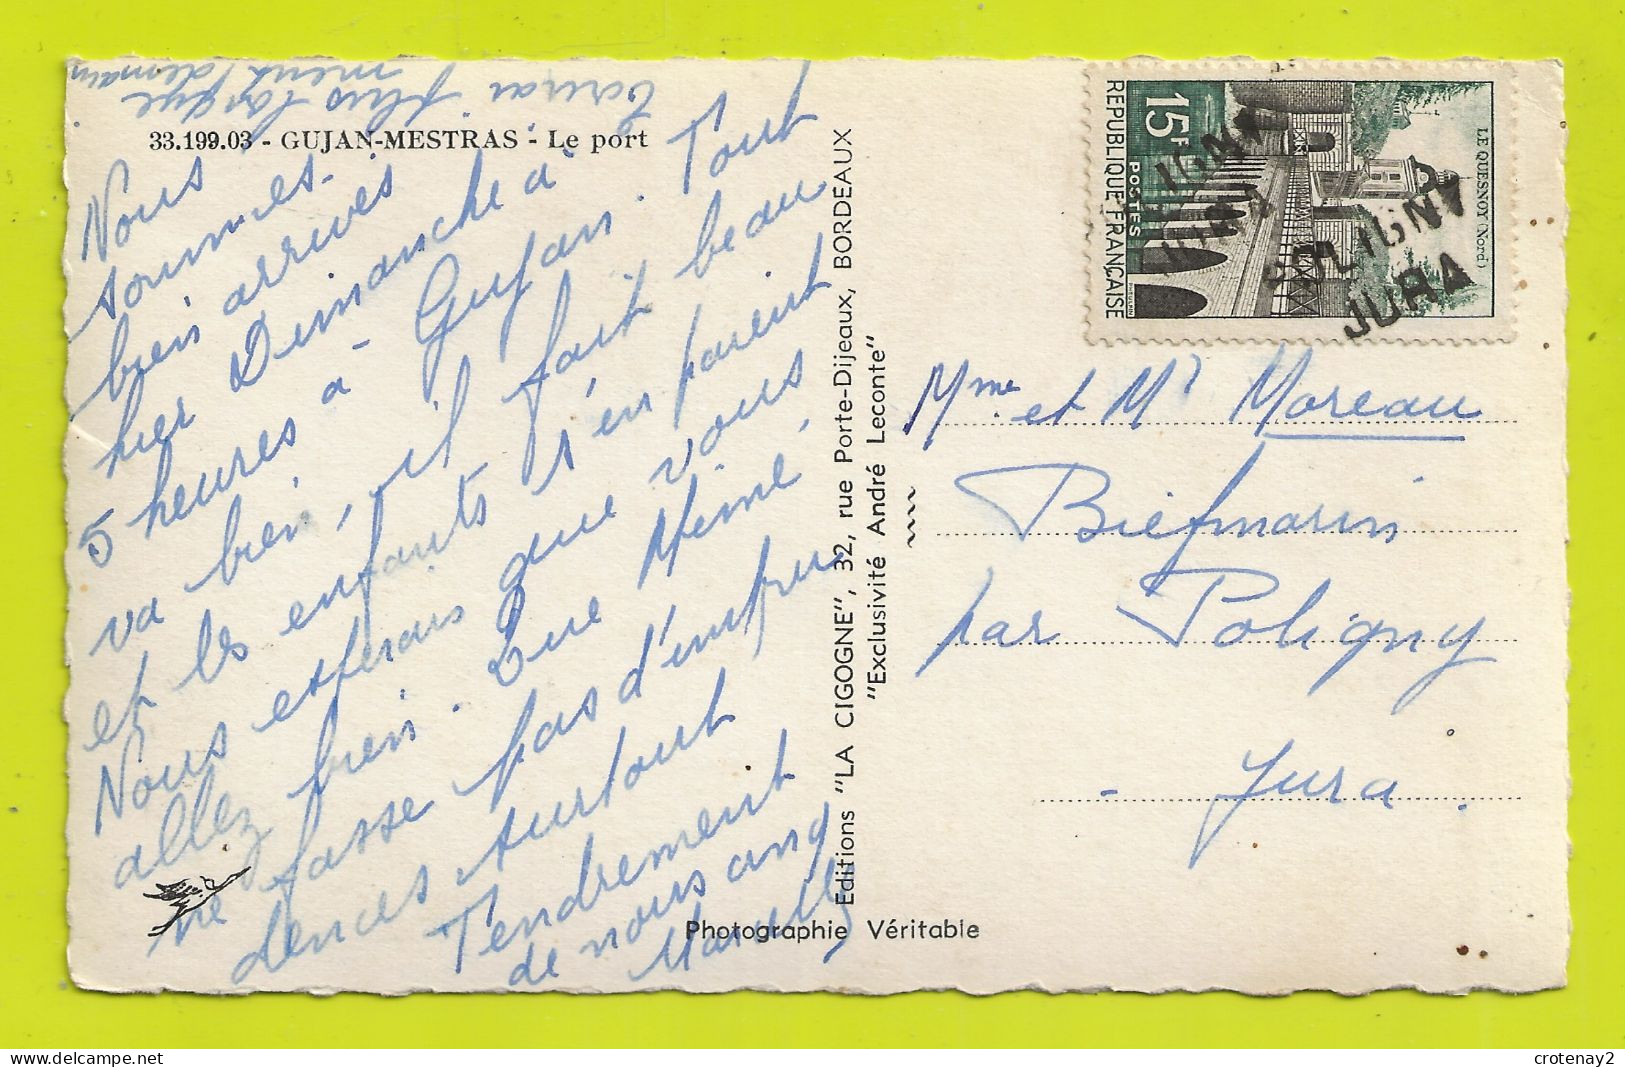 33.199.03 - GUJAN-MESTRAS - Le port
Nous
sommes
bien arrivés
hier Dimanche à
5 heures à Gujan. Tout
va bien, il fait beau
et les enfants s'en paient
Nous espérons que vous
allez bien. Que Mémé
ne fasse pas d'impru
dences surtout
Tendrement
de nous cinq
Marcelle
Ecrirai plus longue
ment demain
Editions "LA CIGOGNE", 32, rue Porte-Dijeaux, BORDEAUX
"Exclusivité André Leconte"
Photographie Véritable
15F
POSTES
REPUBLIQUE FRANÇAISE
LE QUESNOY (Nord)
POLIGNY
JURA
Mme et Mr Moreau
Biefmorin
par Poligny
- Jura.
crotenay2